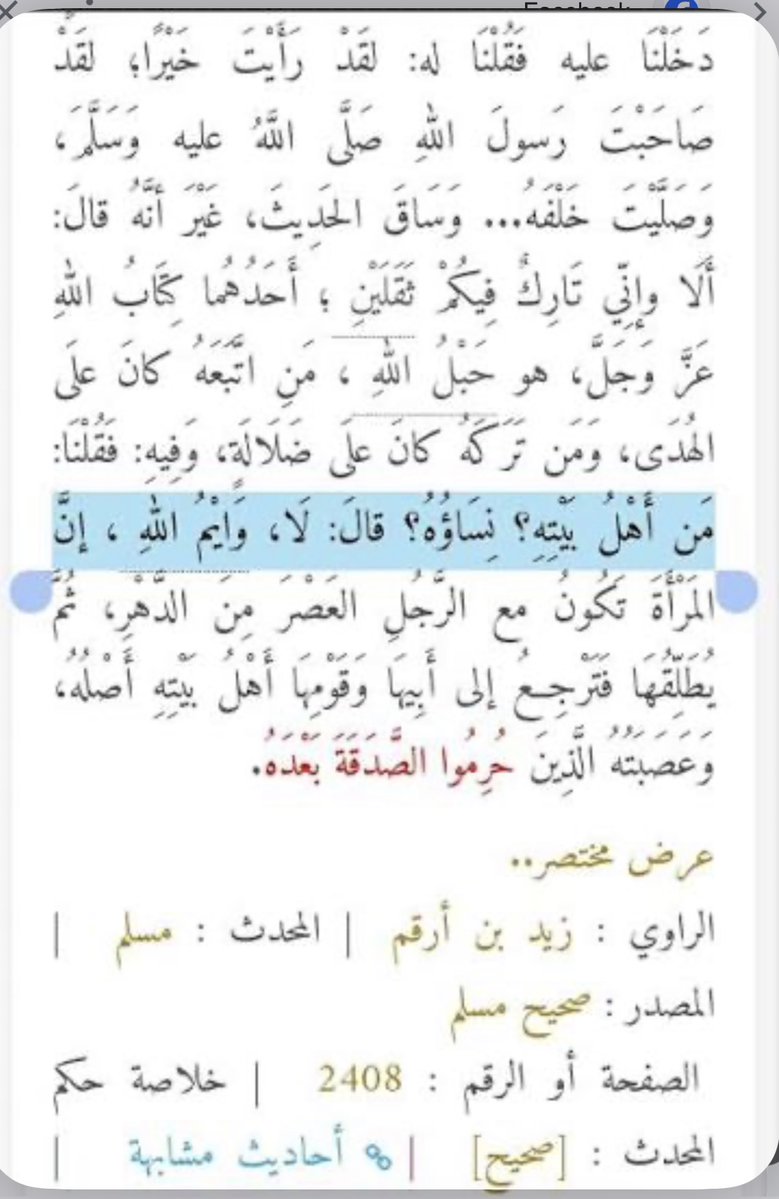 Facebook
دَخَلْنَا عليه فَقُلْنَا له: لقَدْ رَأَيْتَ خَيْرًا؛ لقَدْ
صَاحَبْتَ رَسولَ اللهِ صَلَّى اللَّهُ عليه وَسَلَّمَ،
وَصَلَّيْتَ خَلْفَهُ... وَسَاقَ الحَدِيثَ، غَيْرَ أنَّهُ قالَ:
أَلَا وإنِّي تَارِكٌ فِيكُمْ ثَقَلَيْنِ ؛ أَحَدُهُما كِتَابُ اللهِ
عَزَّ وَجَلَّ، هو حَبْلُ اللهِ ، مَنِ اتَّبَعَهُ كانَ علَى
الهُدَى، وَمَن تَرَكَهُ كانَ علَى ضَلَالَةٍ، وَفِيهِ: فَقُلْنَا:
مَن أَهْلُ بَيْتِهِ؟ نِسَاؤُهُ؟ قالَ: لَا، وَايْمُ اللهِ ، إنَّ
المَرْأَةَ تَكُونُ مع الرَّجُلِ العَصْرَ مِنَ الدَّهْرِ، ثُمَّ
يُطَلِّقُهَا فَتَرْجِعُ إلى أَبِيهَا وَقَوْمِهَا أَهْلُ بَيْتِهِ أَصْلُهُ،
وَعَصَبَتُهُ الَّذِينَ حُرِمُوا الصَّدَقَةَ بَعْدَهُ.
عرض مختصر..
الراوي : زيد بن أرقم | المحدث : مسلم |
المصدر : صحيح مسلم
الصفحة أو الرقم : 2408 | خلاصة حكم
المحدث : [صحيح] | أحاديث مشابهة |